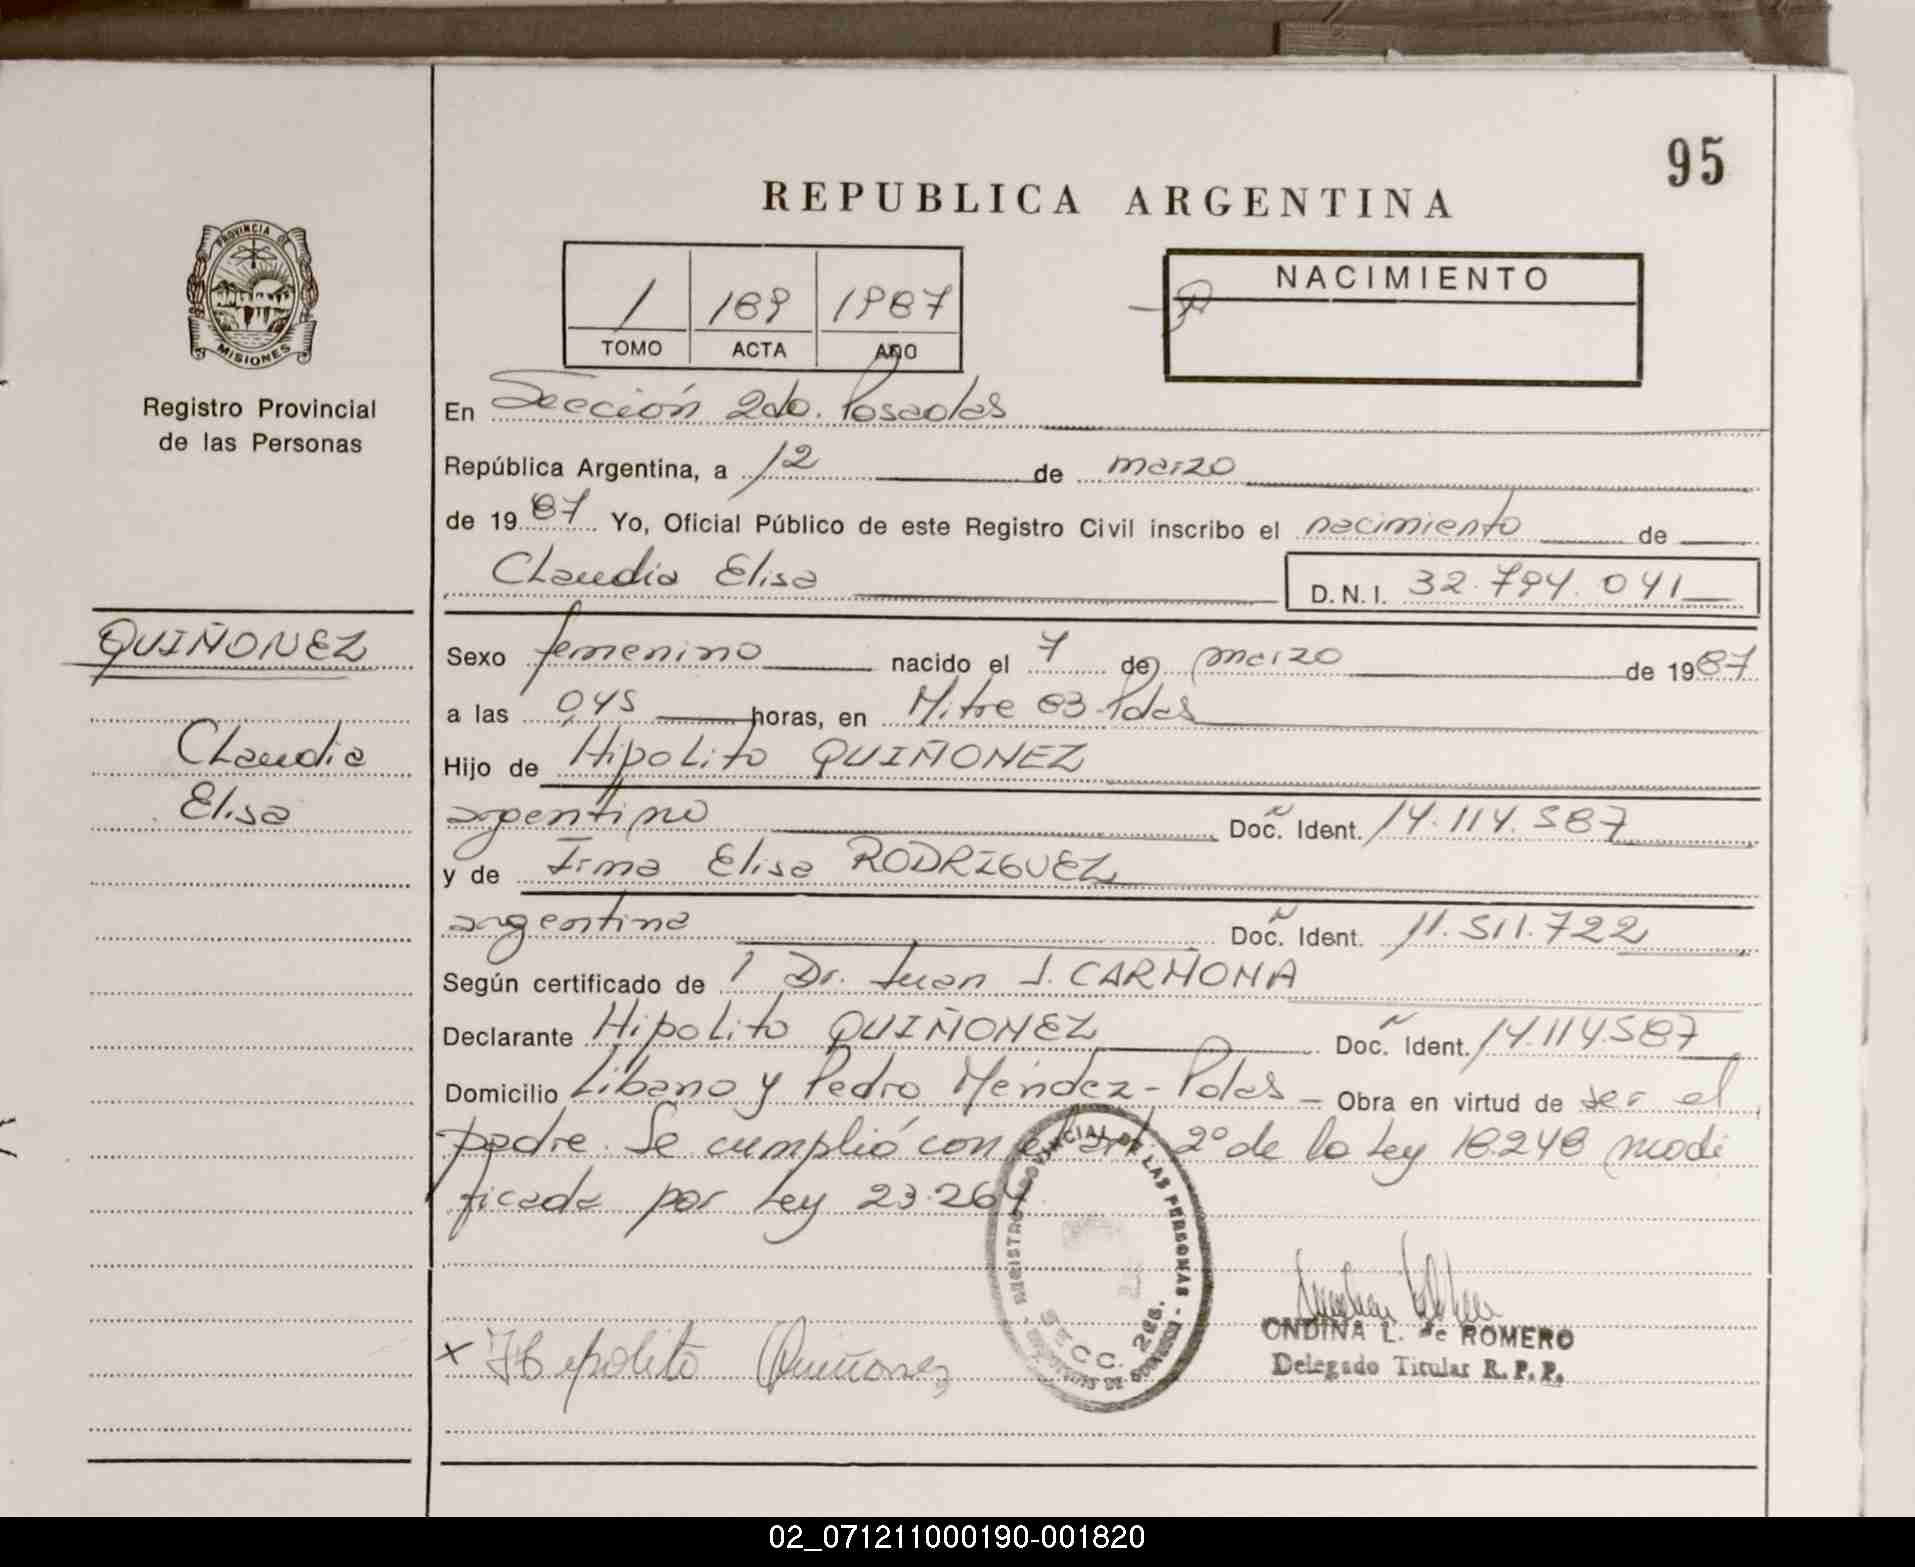 95
REPUBLICA ARGENTINA
PROVINCIA DE
MISIONES
Registro Provincial
de las Personas
1 189 1987
TOMO ACTA AÑO
NACIMIENTO
En Sección 2da. Posadas
República Argentina, a 12 de marzo
de 1987 Yo, Oficial Público de este Registro Civil inscribo el nacimiento de
Claudia Elisa
D.N.I. 32.794.041
QUIÑONEZ
Claudia
Elisa
Sexo femenino nacido el 7 de marzo de 1987
a las 0,45 horas, en Mitre 83-Pdas
Hijo de Hipolito QUIÑONEZ
argentino Doc. Ident. 14.114.587
y de Irma Elisa RODRIGUEZ
argentina Doc. Ident. 11.511.722
Según certificado de 1 Dr. Juan J. CARMONA
Declarante Hipolito QUIÑONEZ Doc. Ident. 14.114.587
Domicilio Libano y Pedro Méndez - Pdas - Obra en virtud de ser el
padre. Se cumplió con el art. 2° de la Ley 18.248 modi
ficada por Ley 23.264
REGISTRO PROVINCIAL DE LAS PERSONAS
SECC. 2da.
x Hipolito Quiñonez
ONDINA L. de ROMERO
Delegado Titular R.P.P.
02_071211000190-001820